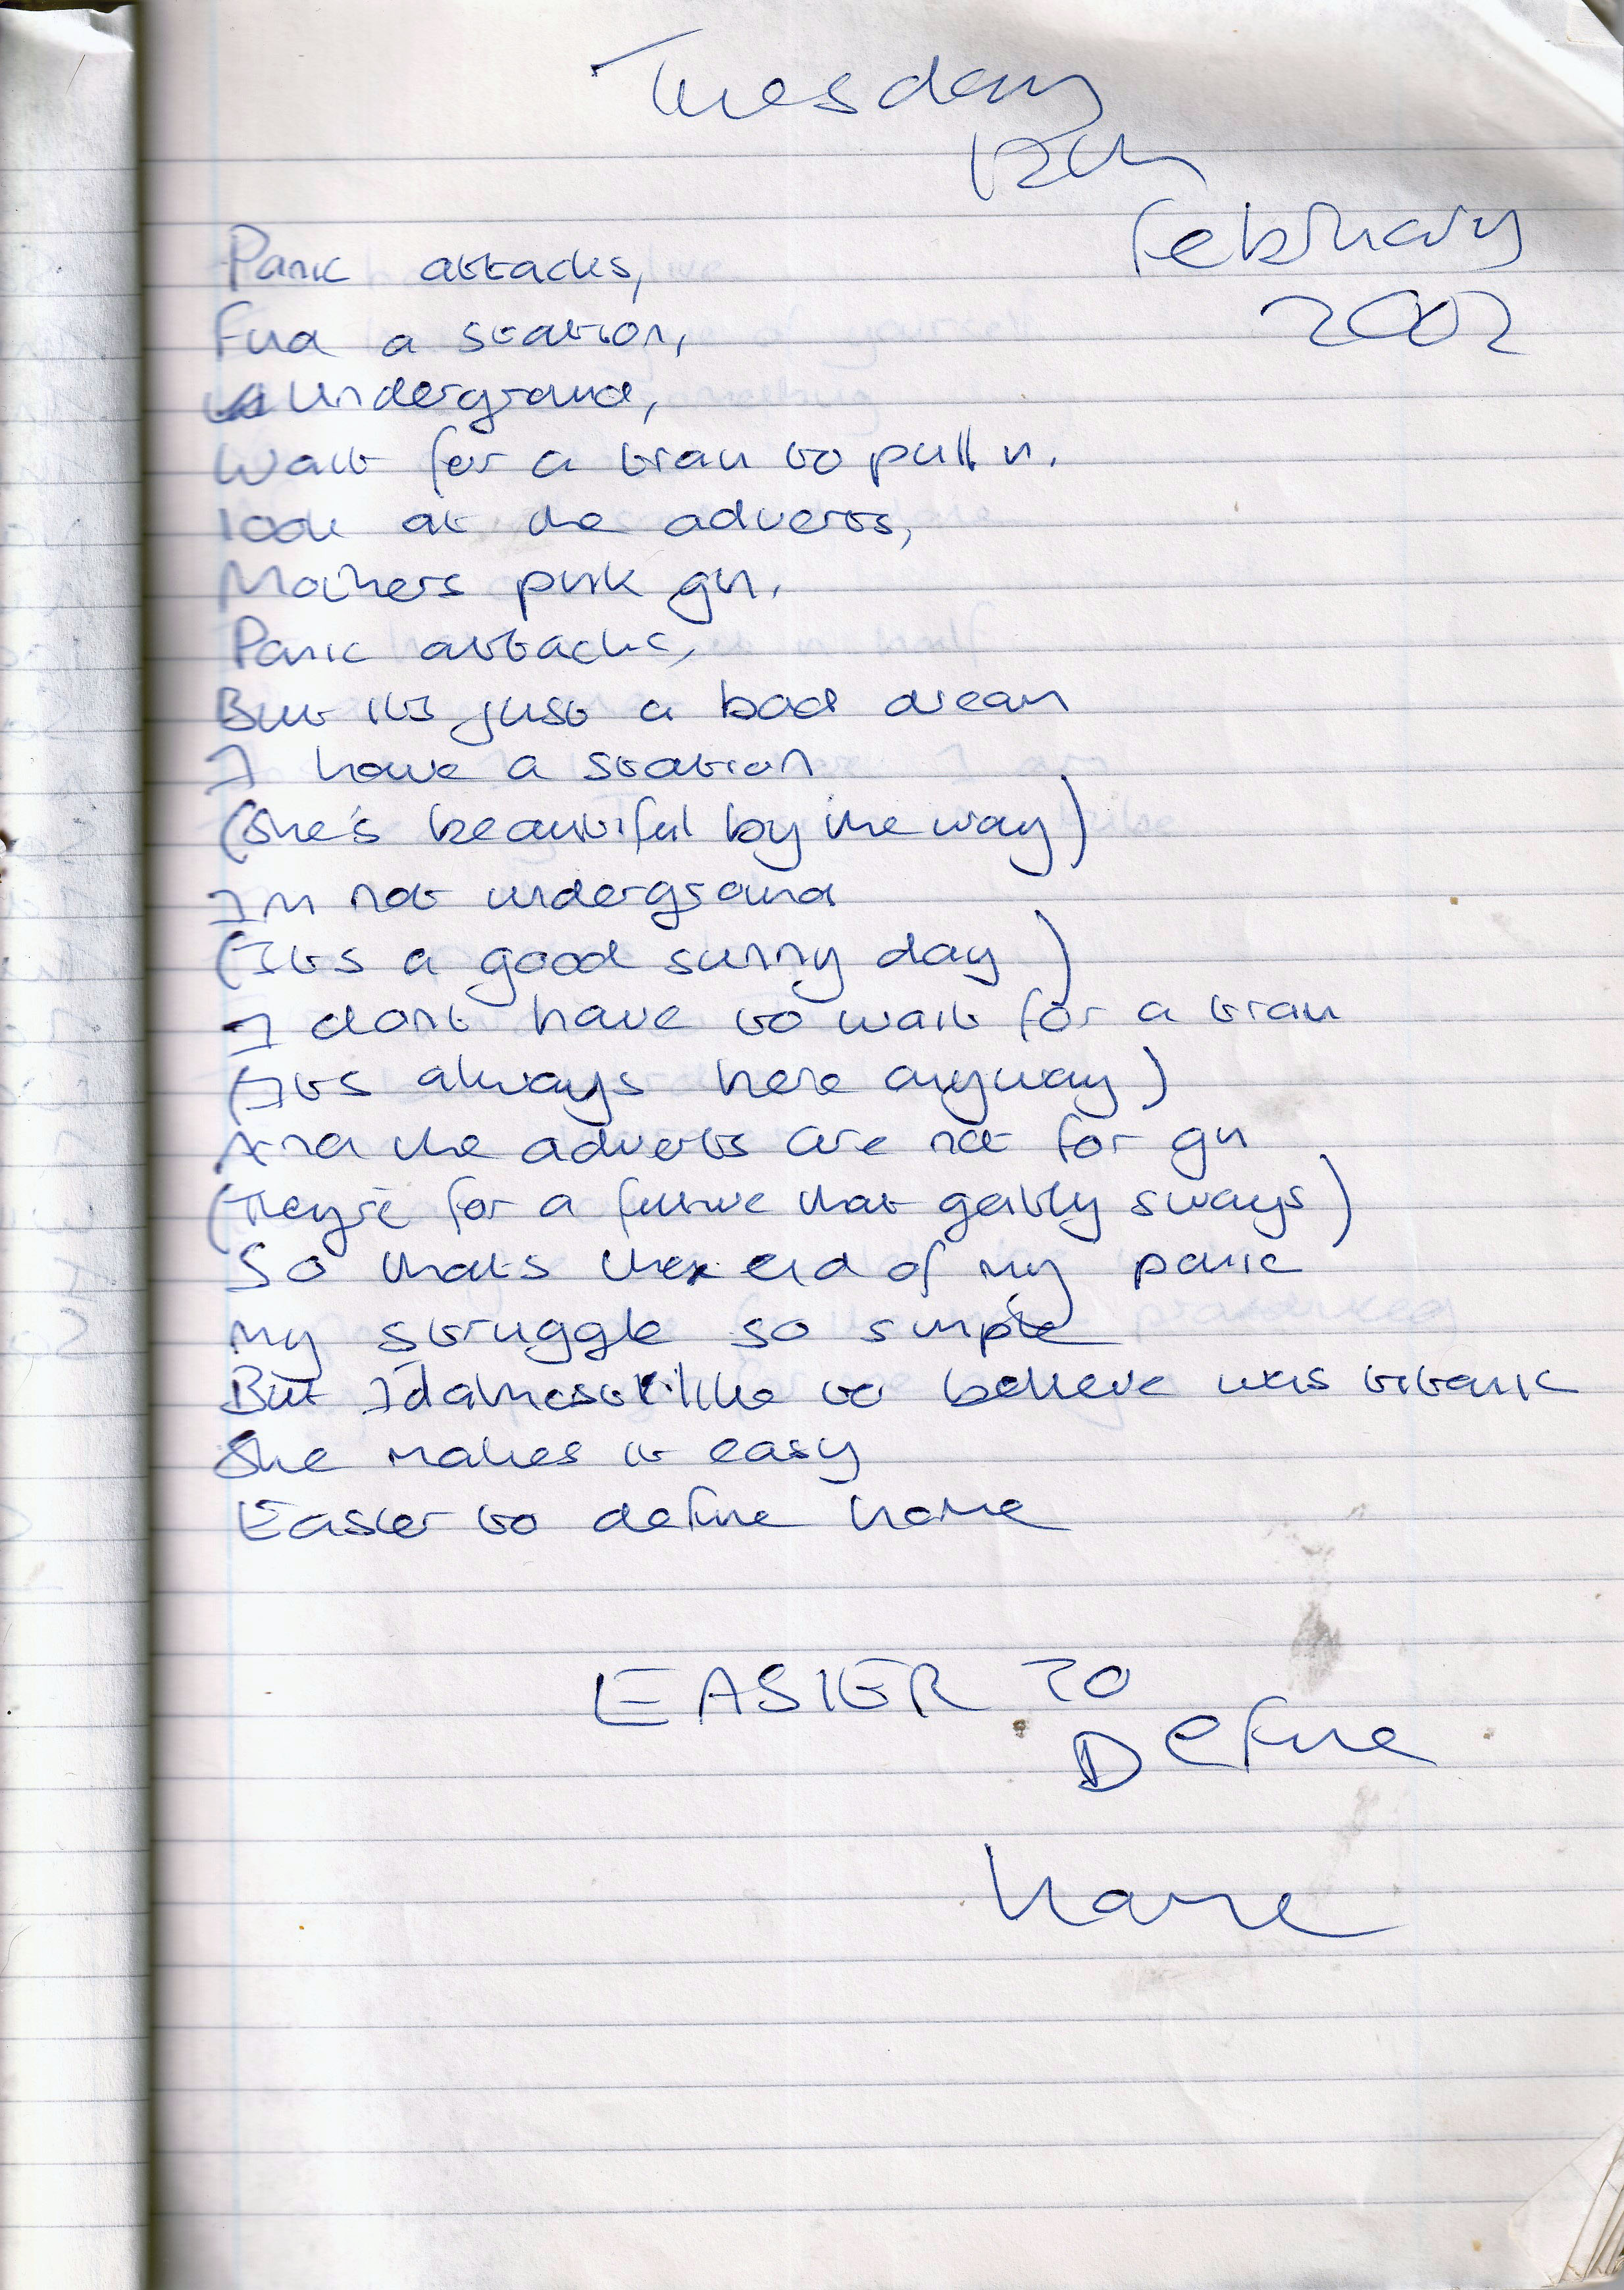 Tuesday
12th
February
2002
Panic attacks,
Find a station,
Underground,
Wait for a train to pull in.
look at the adverts,
Mothers pink gin.
Panic attacks,
But its just a bad dream
I have a station
(She's beautiful by the way)
Im not underground
(Its a good sunny day)
I dont have to wait for a train
(Its always here anyway)
And the adverts are not for gin
(They're for a future that gently sways)
So thats the end of my panic
my struggle so simple
But I'd almost like to believe was titanic
She makes it easy
Easier to define home
EASIER TO
Define
home